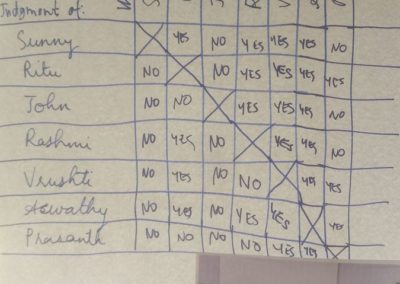 Judgment of.
Sunny YES NO YES YES YES NO
Ritu NO NO YES YES YES YES
John NO NO YES YES YES NO
Rashmi NO YES NO YES YES NO
Vrushti NO YES NO NO YES YES
Aswathy NO YES NO YES YES YES
Prasanth NO NO NO NO YES YES